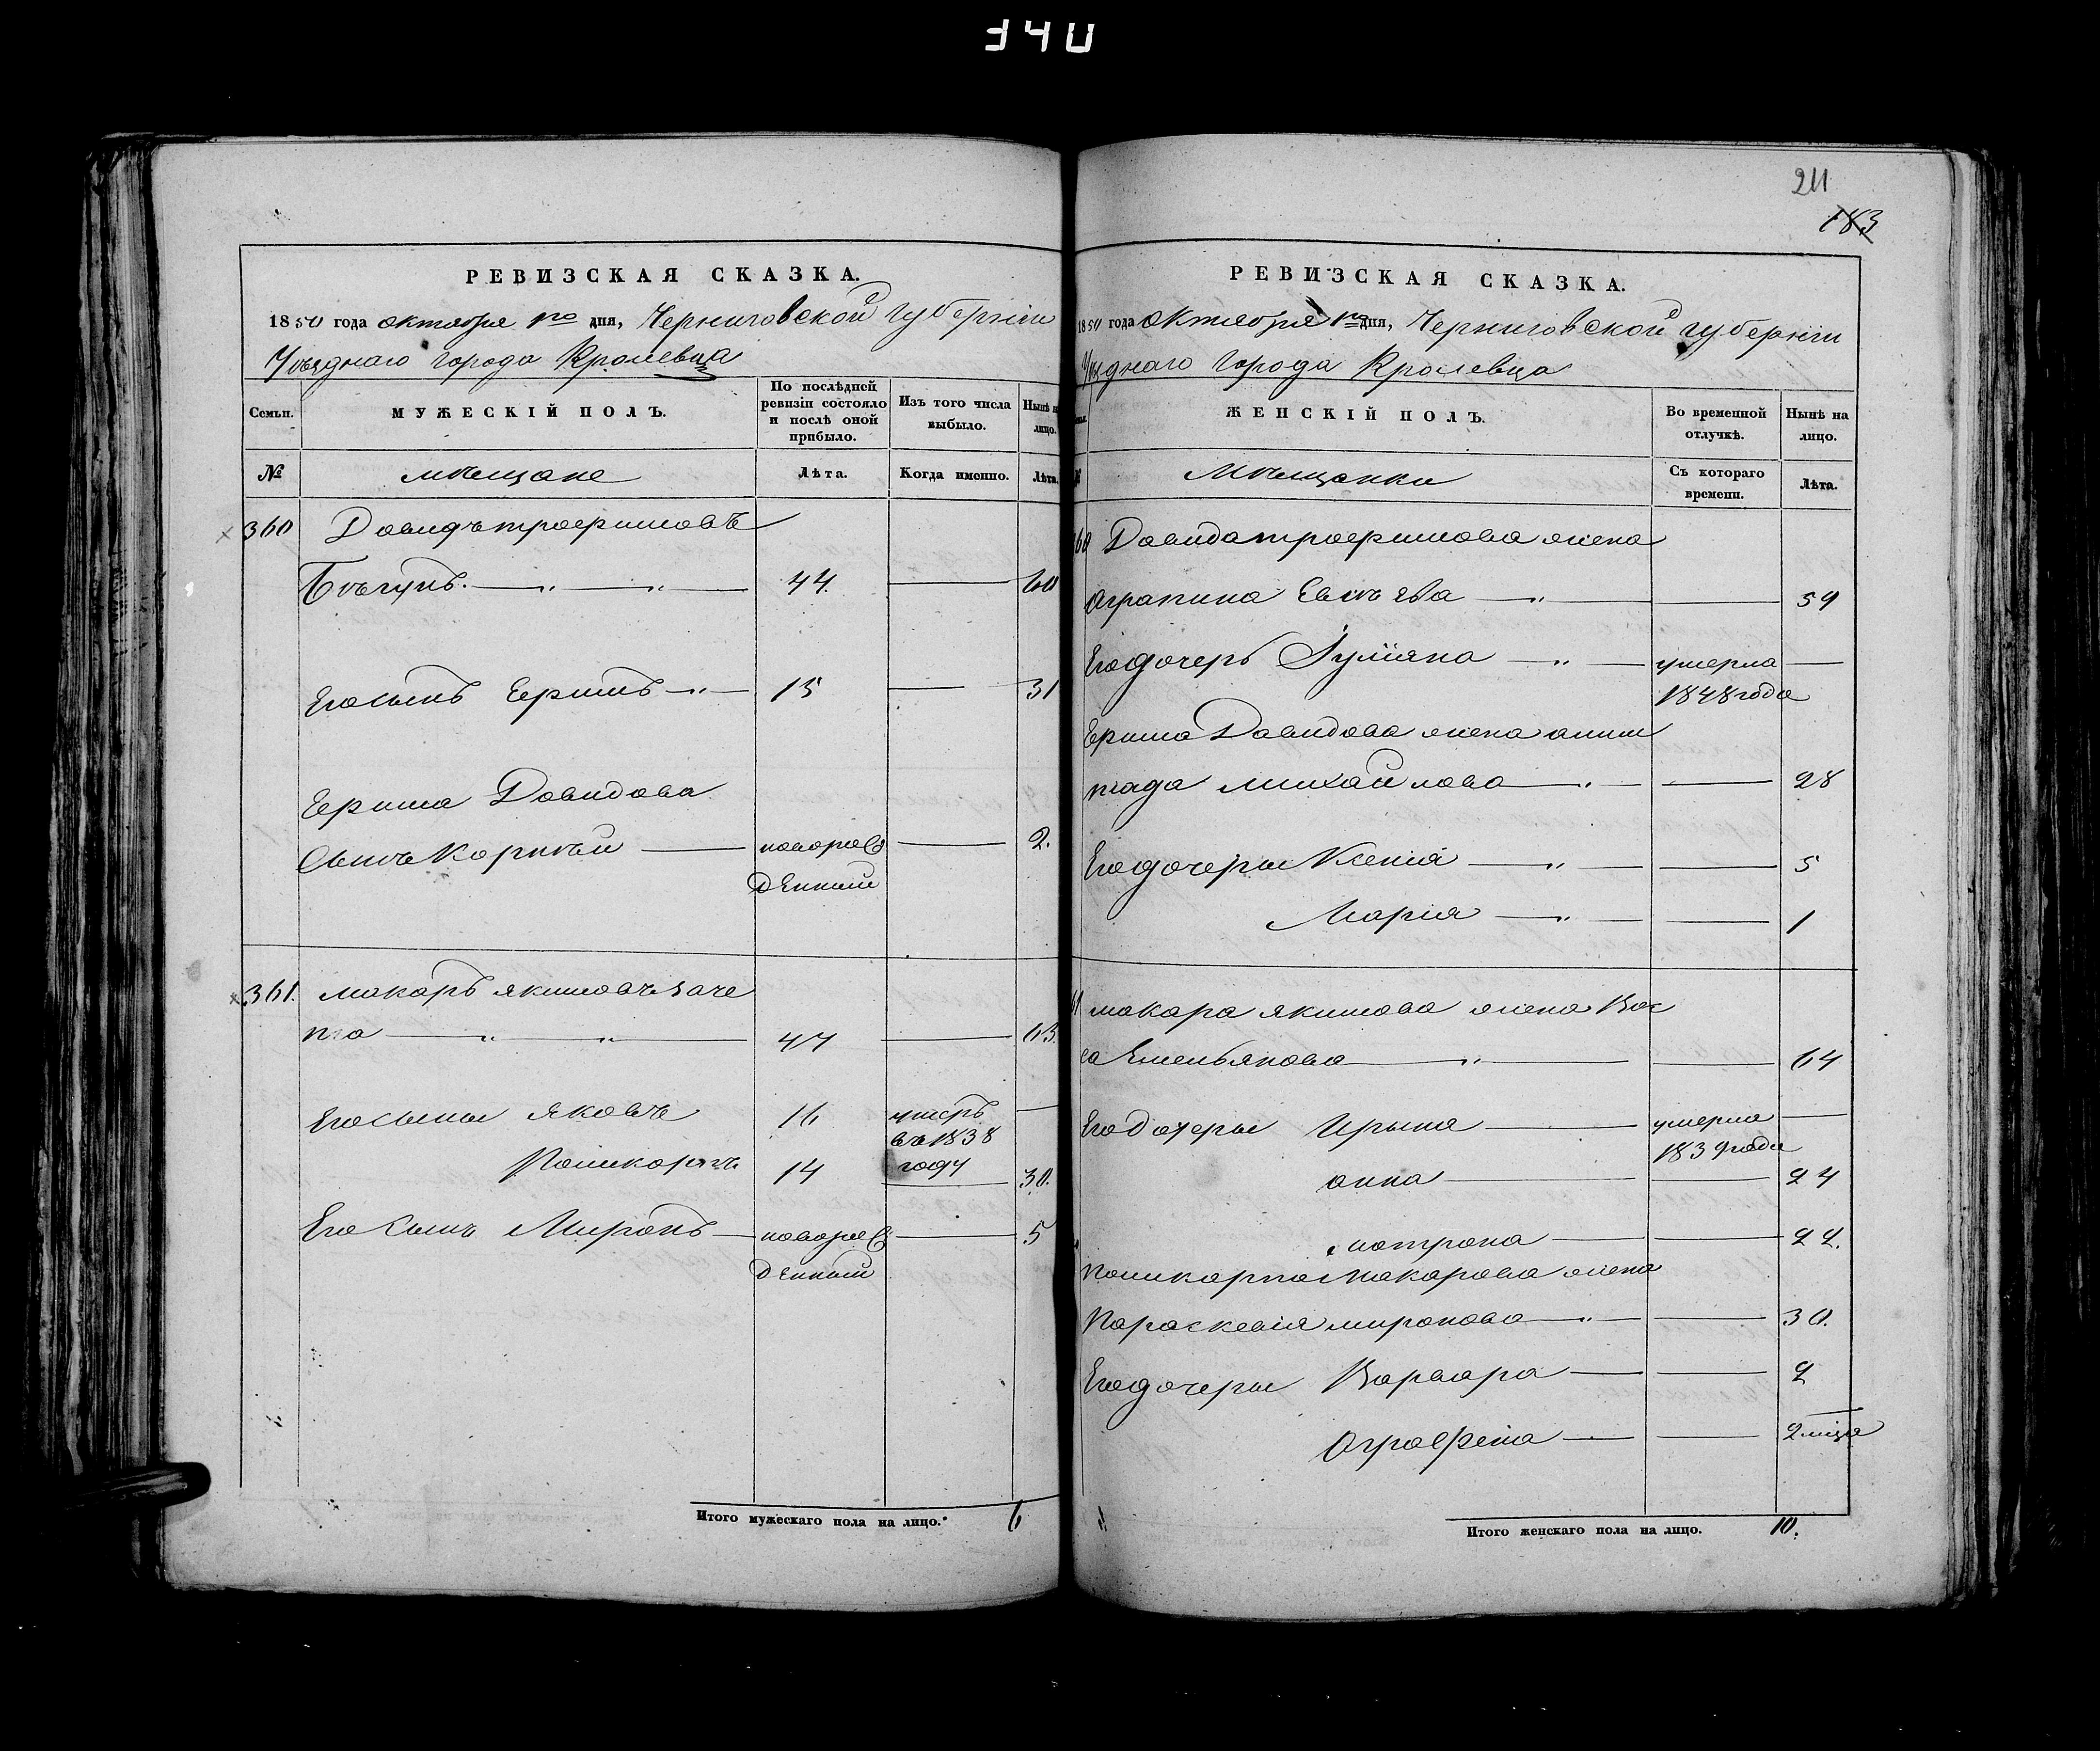 340
РЕВИЗСКАЯ СКАЗКА.
1850 года октября 1го дня, Черниговской губернiи
Уѣзднаго города Кролевца
Семьи.
МУЖЕСКIЙ ПОЛЪ.
По послѣдней ревизiи состояло и послѣ оной прибыло.
Изъ того числа выбыло.
Нынѣ на лицо.
№
мѣщане
Лѣта.
Когда именно.
Лѣта.
360 Давидъ трофимовъ
Бѣгунъ. 44. 60
Его сынъ Ефимъ 15 31
Ефима Давидова
Сынъ Корнѣй новорож 2.
денный
361. макаръ якимовъ заче
па 47 63.
Его сыны яковъ 16 умеръ
въ 1838
Поликарпъ 14 году 30.
Его Сынъ Миронъ новорож 5
денный
Итого мужескаго пола на лицо. 6
211
183
РЕВИЗСКАЯ СКАЗКА.
1850 года октября 1го дня, Черниговской губернiи
Уѣзднаго города Кролевца
ЖЕНСКIЙ ПОЛЪ.
Во временной отлучкѣ.
Нынѣ на лицо.
мѣщанки
Съ котораго времени.
Лѣта.
60 Давида трофимова жена
Аграпина Евсѣева 59
Его дочерь Iулiяна умерла
1848 года
Ефима Давидова жена анти
пада михайлова 28
Его дочеры Ксенiя 5
Марiя 1
61 макара якимова жена Вас
са Емельянова 64
Его Дочеры Ирына умерла
1839 года
анна 24
мотрона 22.
Поликарпа Макарова жена
Параскевiя миронова 30.
Его дочеры Варвара 2
Аграфена 2 мца
Итого женскаго пола на лицо. 10.